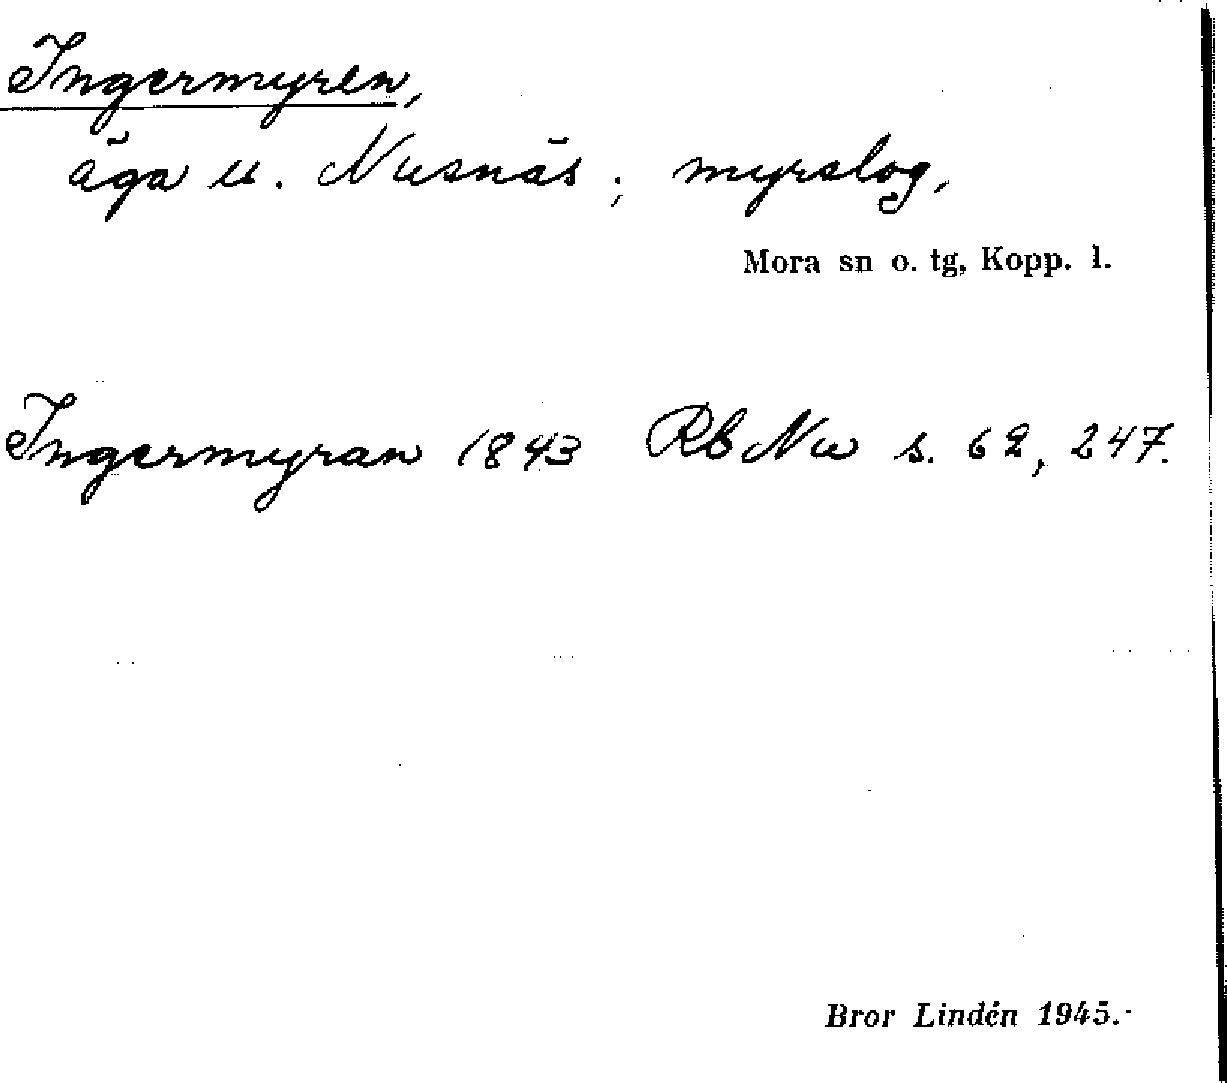 Ingermyren,
äga u. Nusnäs; myrslog,
Mora sn o. tg, Kopp. l.
Ingermyran 1843 Rb Nu s. 62, 247.
Bror Lindén 1945.